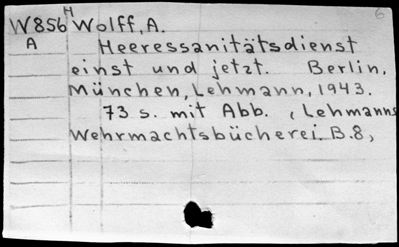 H 6
W856 Wolff, A.
A Heeressanitätsdienst
einst und jetzt. Berlin,
München, Lehmann, 1943.
73 s. mit Abb. (Lehmanns
Wehrmachtsbücherei. B.8,